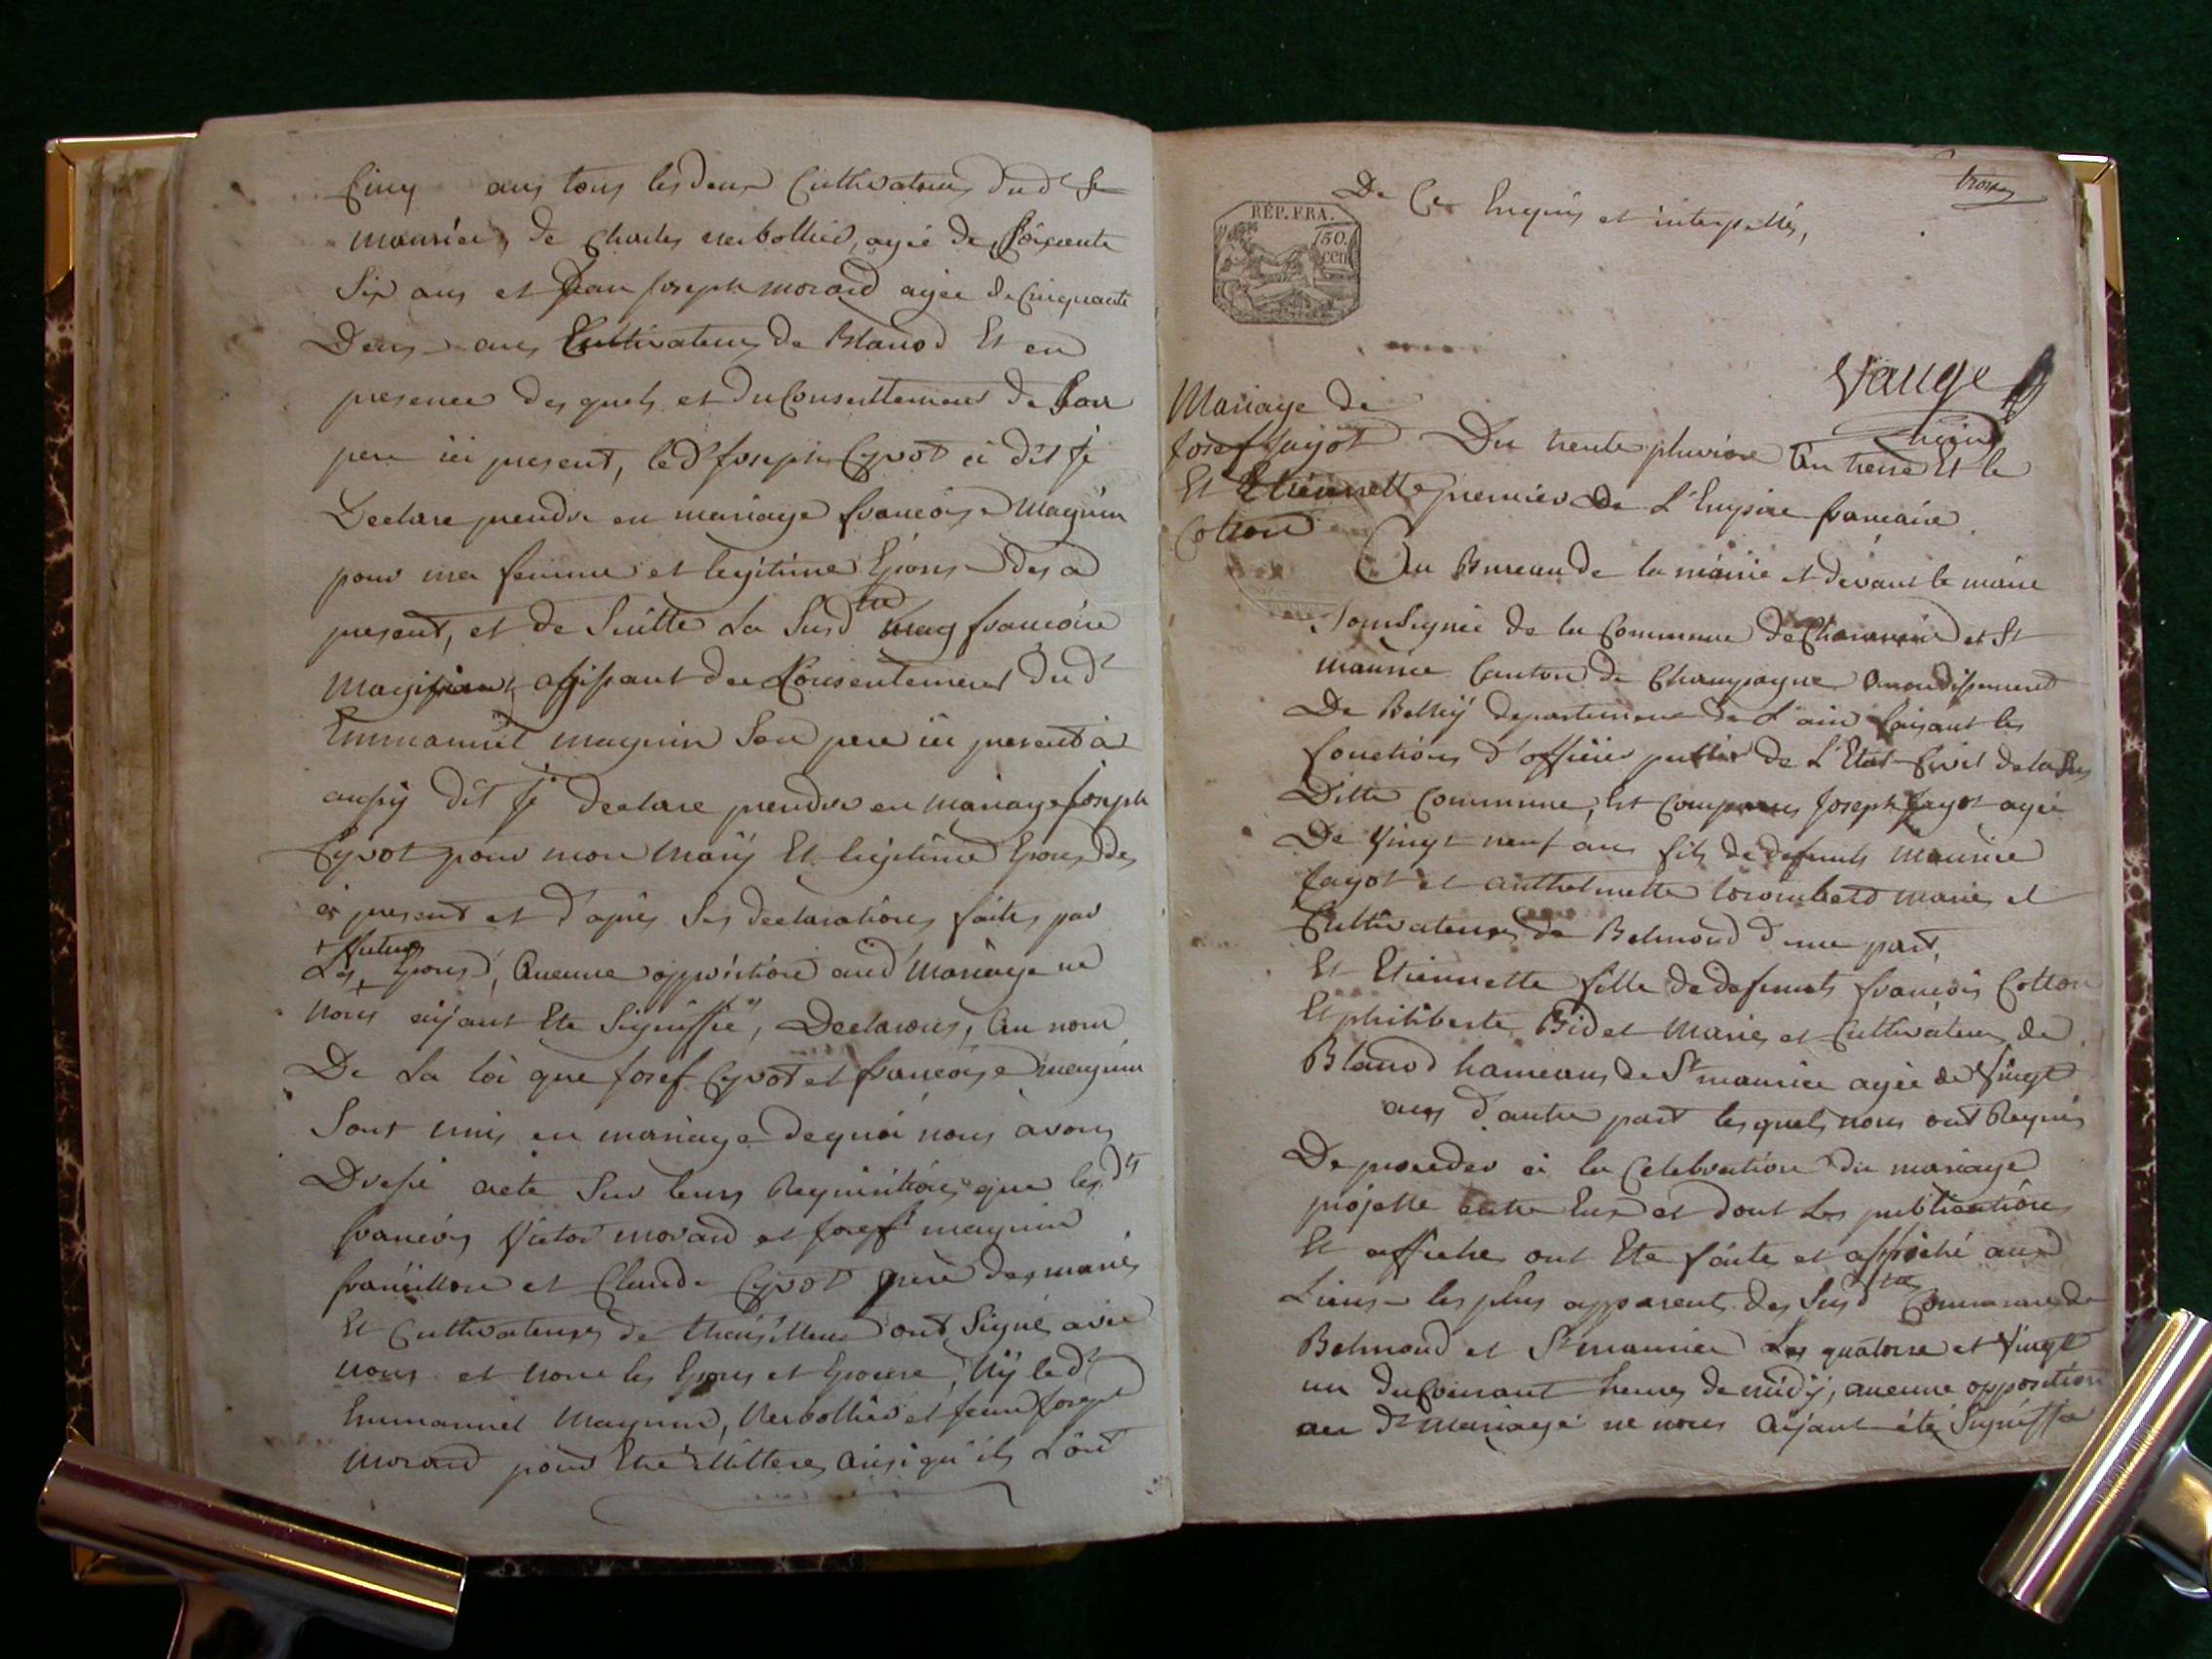 Cinq ans tous les deux Cultivateurs dud St
maurice, de Charles verbollier, agé de Soixante
Six ans et Jean Joseph morard agée de Cinquante
Deux ans Cultivateurs de Blanod Et en
presence des quels et du Consentement de Son
pere ici present, led Joseph Cyvot a dit je
Declare prendre en mariage francoise Magnin
pour ma femme et legitime Epouse des a
present, et de Suitte La Susd te francoise
agissant du Consentement dud
Emmanuel magnin Son pere ici present a
aussy dit je declare prendre en mariage Joseph
Cyvot pour mon Mary Et legitime Epous des
a present et d'apres Ses declarations faites par
Les + futurs Epous, Aucune opposition aud Mariage ne
nous aijant Ete Signiffié, Declarons, Au nom
De La loi que Josef Cyvot et francoise magnin
Sont unis en mariage dequoi nous avons
Dressé acte Sur leurs Requisitions que lesdts
francois Victor morard et Josef magnin
et Claude Cyvot pere des maries
Et Cultivateurs de ont Signé avec
nous et non les Epous et Epouse, Ny led
Emmanuel Magnin, Verbollier et jean Joseph
Morard pour Etre illitteres ainsi qu'ils L'ont
De Ce Enquis et interpellés,
REP. FRA.
50.
cen
Vauge
Mariage de
Josef fayot
Et Etiennette
Cotton
Du trente pluviose An treise Et le
premier de L'Empire francaise.
Au Bureau de la mairie et devant le maire
Soussignée de la Commune de et St
maurice Canton de Champagne Arrondissement
De Belley departement de L'ain faisant les
fonctions d'officier public de L'Etat Civil de la Sus
Ditte Commune, Est Comparus Joseph fayot agée
De Vingt neuf ans fils de defunts Maurice
fayot et anthelmette maries et
Cultivateurs de Belmond d'une part,
Et Etiennette fille de defunts francois Cotton
Et philiberte Bidet Maries et Cultivateurs de
Blanod hameaux de St maurice agée de Vingt
ans d'autre part lesquels nous ont Requis
De proceder a la Celebration du mariage
projette entre Eux et dont Les publications
Et affiches ont Ete faite et affiché aux
Lieux les plus apparents des Susdtes Communes de
Belmond et St maurice Les quatorse et Vingt
un du Courant heures de midy, aucune opposition
au d mariage ne nous Aijant été Signiffié